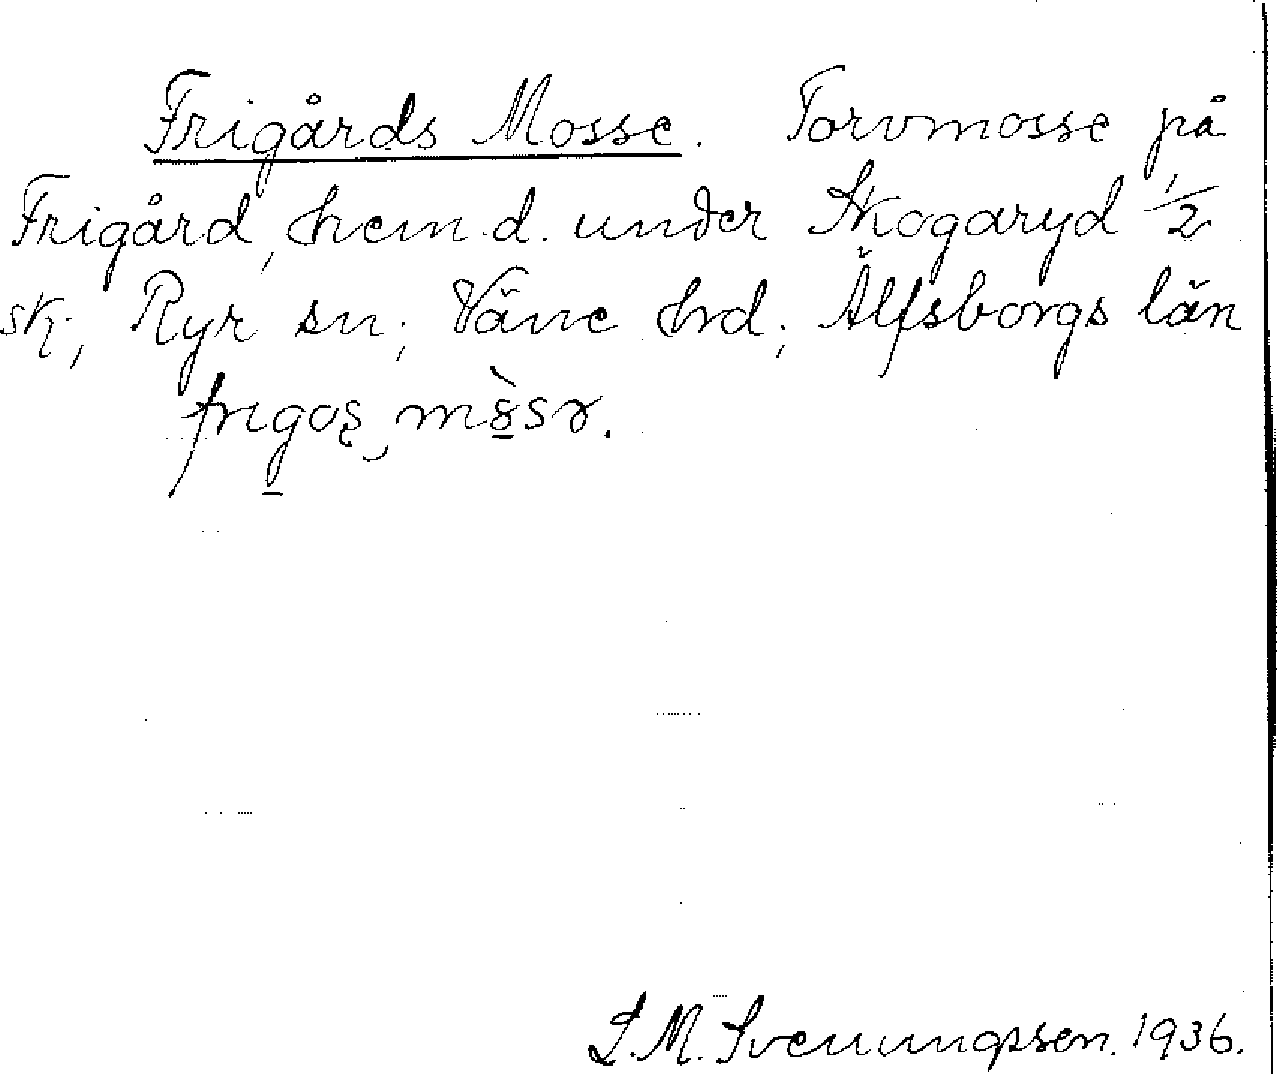 Frigårds Mosse. Torvmosse på
Frigård, hem.d. under Skogaryd 1/2
sk; Ryr sn; Väne hrd; Älfsborgs län
S.M. Svenungsson. 1936.